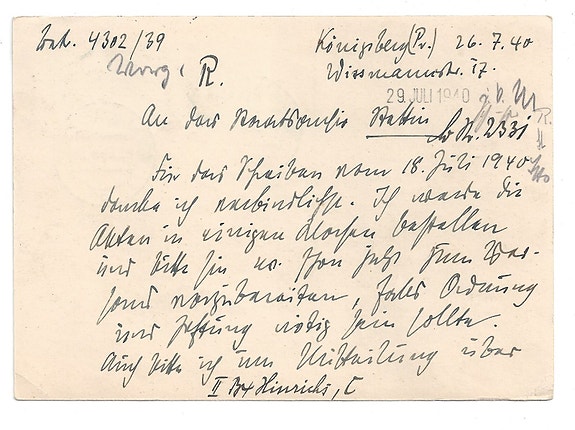 4302/39
Königsberg (Pr.) 26.7.40
Vorg. R.
Wissmannstr. 17.
29. JULI 1940
An das Staatsarchiv Stettin
Für das Schreiben vom 18. Juli 1940
danke ich verbindlichst. Ich werde die
Akten in einigen Wochen bestellen
und bitte sie schon jetzt zum Ver-
sand vorzubereiten, falls Ordnung
und Heftung nötig sein sollte.
Auch bitte ich um Mitteilung über
II Hinrichs, C